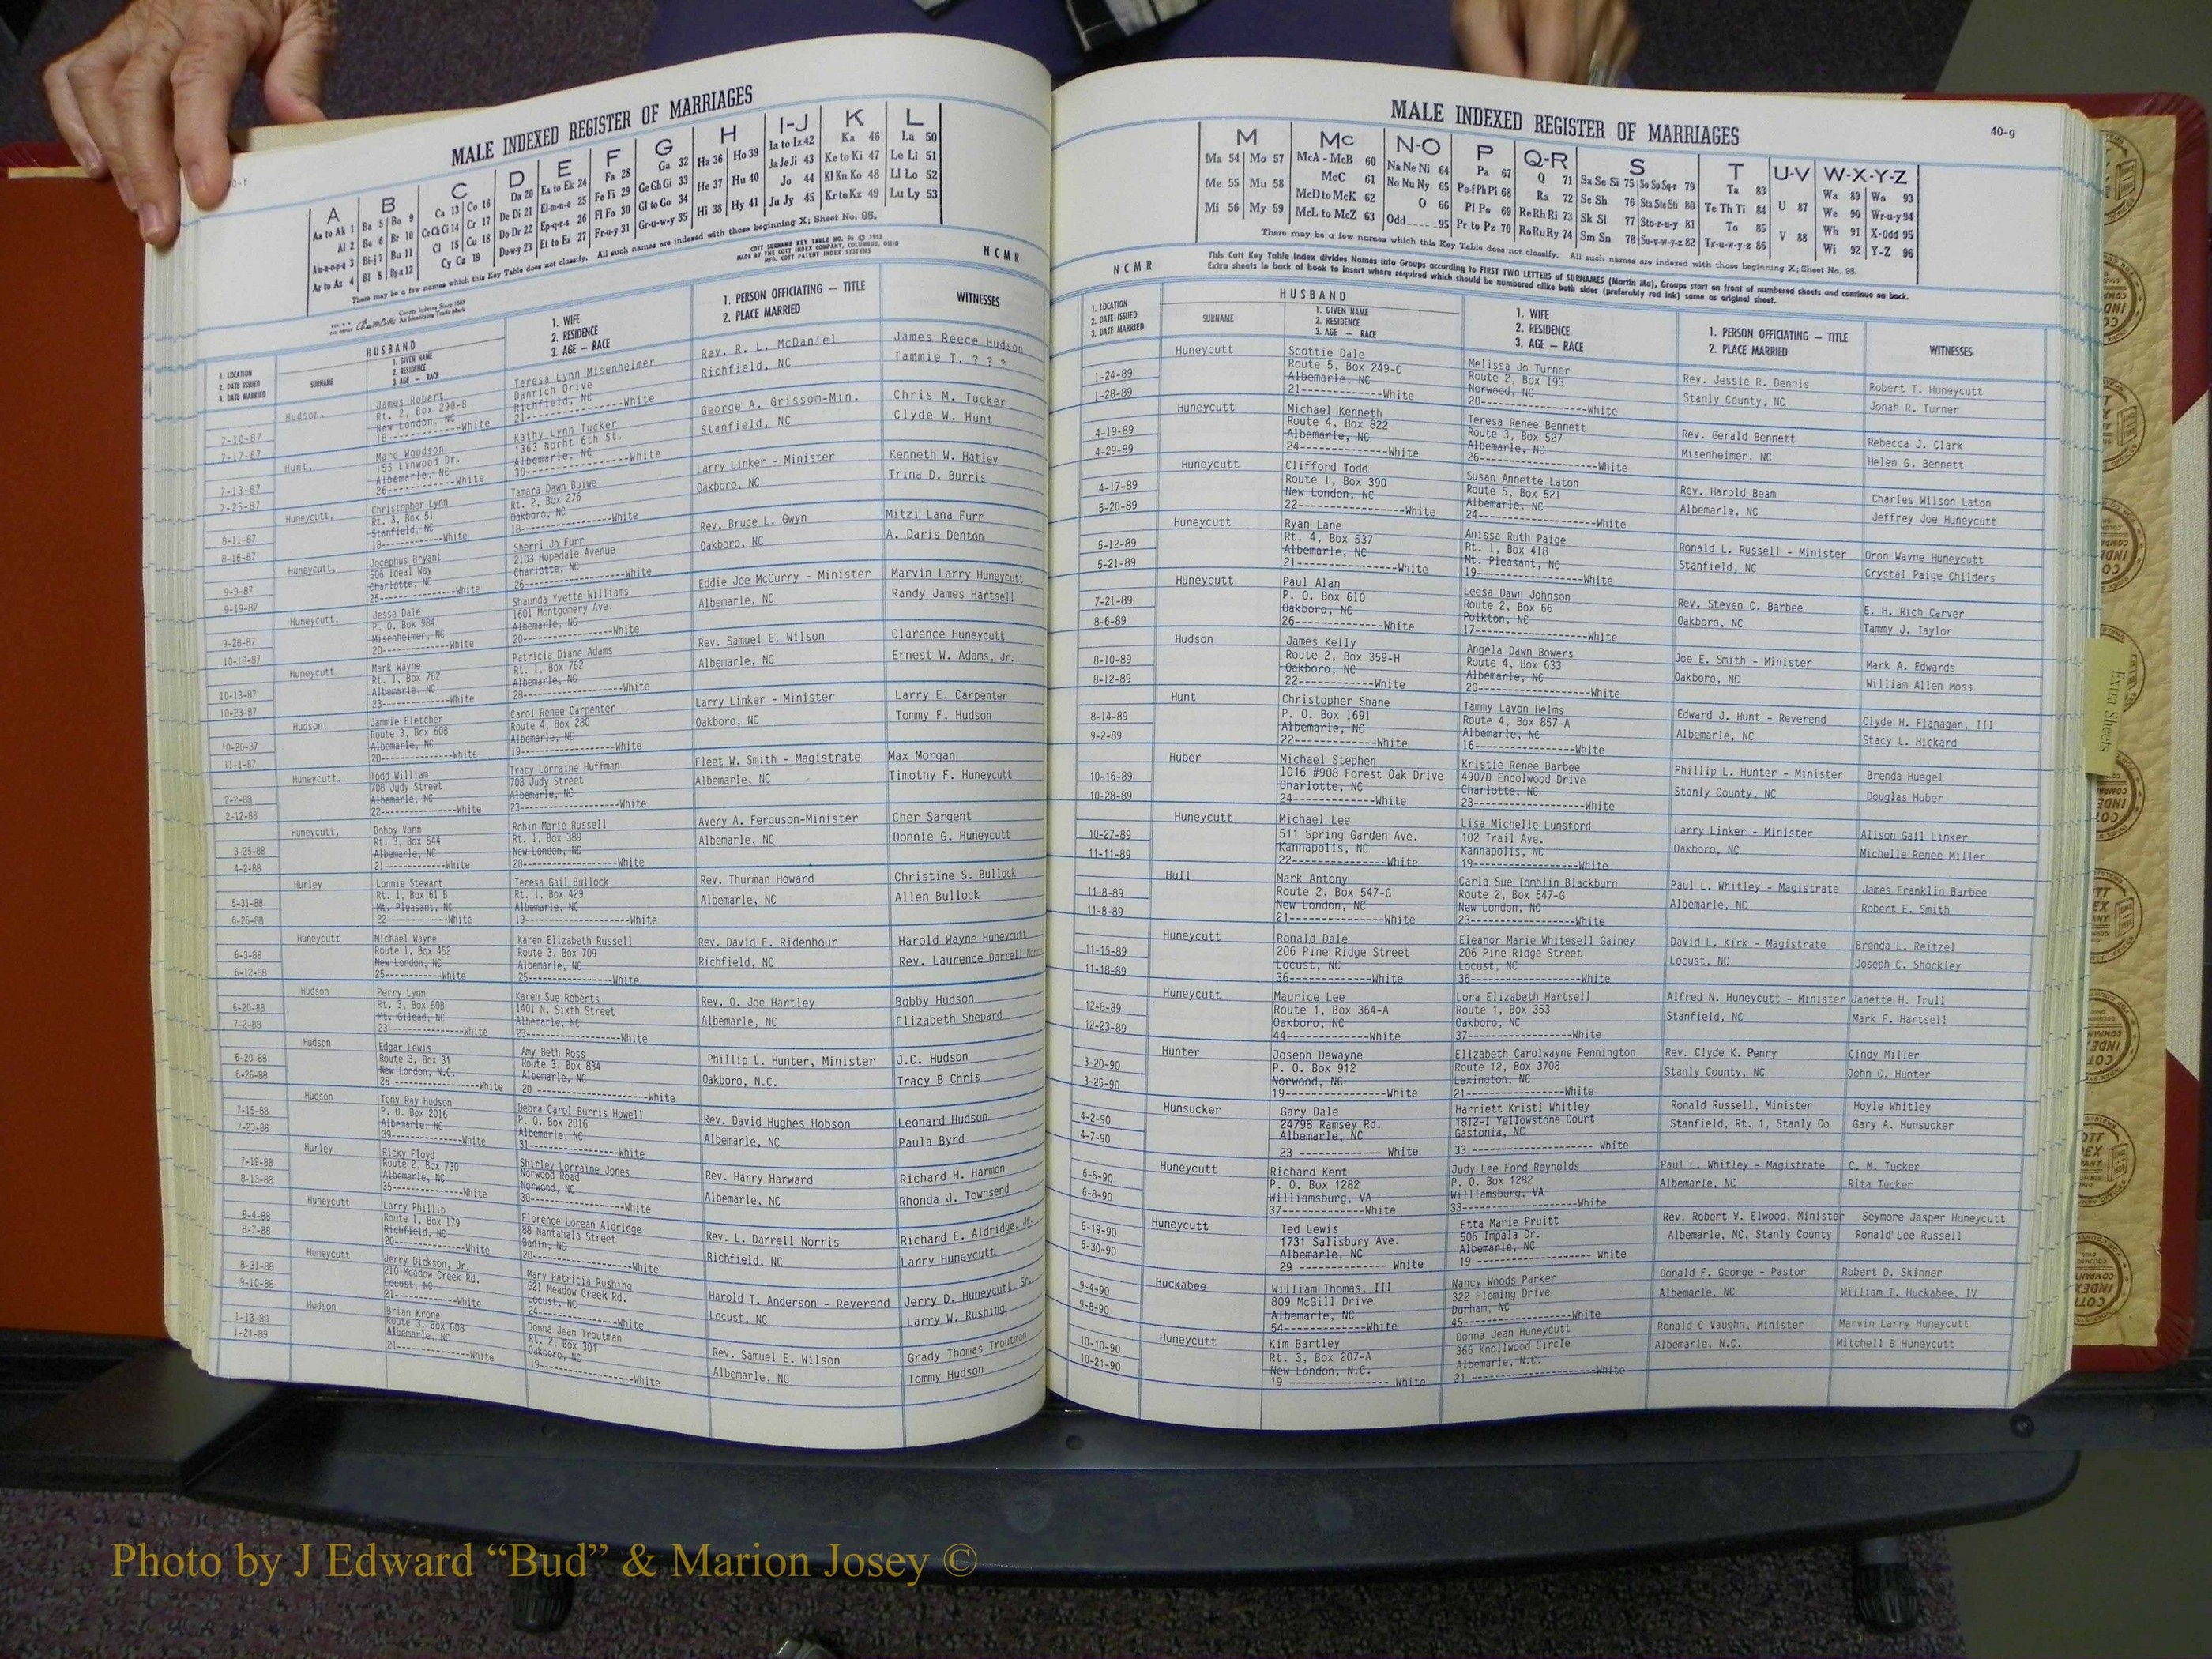 MALE INDEXED REGISTER OF MARRIAGES
A B C D E F G H I-J K L
Aa to Ak 1 Ba 5 Bo 9 Ca 13 Co 16 Da 20 Ea to Ek 24 Fa 28 Ga 32 Ha 36 Ho 39 Ia to Iz 42 Ka 46 La 50
Al 2 Be 6 Br 10 Ce Ch Ci 14 Cr 17 De Di 21 El-m-n-o 25 Fe Fi 29 Ge Gh Gi 33 He 37 Hu 40 Ja Je Ji 43 Ke to Ki 47 Le Li 51
Am-n-o-p-q 3 Bi-j 7 Bu 11 Cl 15 Cu 18 Do Dr 22 Ep-q-r-s 26 Fl Fo 30 Gl to Go 34 Hi 38 Hy 41 Jo 44 Kl Kn Ko 48 Ll Lo 52
Ar to Az 4 Bl 8 By-z 12 Cy Cz 19 Du-w-y 23 Et to Ez 27 Fr-u-y 31 Gr-u-w-y 35 Ju Jy 45 Kr to Kz 49 Lu Ly 53
There may be a few names which this Key Table does not classify. All such names are indexed with those beginning X; Sheet No. 96.
County Indexes Since 1888
An Identifying Trade Mark
COTT SURNAME KEY TABLE NO. 96 © 1952
MADE BY THE COTT INDEX COMPANY, COLUMBUS, OHIO
MFG. COTT PATENT INDEX SYSTEMS
N C M R
1. LOCATION
2. DATE ISSUED
3. DATE MARRIED
HUSBAND
SURNAME
1. GIVEN NAME
2. RESIDENCE
3. AGE — RACE
1. WIFE
2. RESIDENCE
3. AGE — RACE
1. PERSON OFFICIATING — TITLE
2. PLACE MARRIED
WITNESSES
7-10-87
7-17-87
Hudson,
James Robert
Rt. 2, Box 290-B
New London, NC
18--------------White
Teresa Lynn Misenheimer
Danrich Drive
Richfield, NC
21--------------White
Rev. R. L. McDaniel
Richfield, NC
James Reece Hudson
Tammie T. ? ? ?
7-13-87
7-25-87
Hunt,
Marc Woodson
155 Linwood Dr.
Albemarle, NC
26--------------White
Kathy Lynn Tucker
1363 Norht 6th St.
Albemarle, NC
30--------------White
George A. Grissom-Min.
Stanfield, NC
Chris M. Tucker
Clyde W. Hunt
8-11-87
8-16-87
Huneycutt,
Christopher Lynn
Rt. 3, Box 51
Stanfield, NC
18--------------White
Tamara Dawn Buiwe
Rt. 2, Box 276
Oakboro, NC
18--------------White
Larry Linker - Minister
Oakboro, NC
Kenneth W. Hatley
Trina D. Burris
9-9-87
9-19-87
Huneycutt,
Jocephus Bryant
506 Ideal Way
Charlotte, NC
25--------------White
Sherri Jo Furr
2103 Hopedale Avenue
Charlotte, NC
26--------------White
Rev. Bruce L. Gwyn
Oakboro, NC
Mitzi Lana Furr
A. Daris Denton
9-28-87
10-18-87
Huneycutt,
Jesse Dale
P. O. Box 984
Misenheimer, NC
20--------------White
Shaunda Yvette Williams
1601 Montgomery Ave.
Albemarle, NC
20--------------White
Eddie Joe McCurry - Minister
Albemarle, NC
Marvin Larry Huneycutt
Randy James Hartsell
10-13-87
10-23-87
Huneycutt,
Mark Wayne
Rt. 1, Box 762
Albemarle, NC
23--------------White
Patricia Diane Adams
Rt. 1, Box 762
Albemarle, NC
28--------------White
Rev. Samuel E. Wilson
Albemarle, NC
Clarence Huneycutt
Ernest W. Adams, Jr.
10-20-87
11-1-87
Hudson,
Jammie Fletcher
Route 3, Box 608
Albemarle, NC
20--------------White
Carol Renee Carpenter
Route 4, Box 280
Albemarle, NC
19--------------White
Larry Linker - Minister
Oakboro, NC
Larry E. Carpenter
Tommy F. Hudson
2-2-88
2-12-88
Huneycutt,
Todd William
708 Judy Street
Albemarle, NC
22--------------White
Tracy Lorraine Huffman
708 Judy Street
Albemarle, NC
23--------------White
Fleet W. Smith - Magistrate
Albemarle, NC
Max Morgan
Timothy F. Huneycutt
3-25-88
4-2-88
Huneycutt,
Bobby Vann
Rt. 3, Box 544
Albemarle, NC
21--------------White
Robin Marie Russell
Rt. 1, Box 389
New London, NC
20--------------White
Avery A. Ferguson-Minister
Albemarle, NC
Cher Sargent
Donnie G. Huneycutt
5-31-88
6-26-88
Hurley
Lonnie Stewart
Rt. 1, Box 61 B
Mt. Pleasant, NC
22--------------White
Teresa Gail Bullock
Rt. 1, Box 429
Albemarle, NC
19--------------White
Rev. Thurman Howard
Albemarle, NC
Christine S. Bullock
Allen Bullock
6-3-88
6-12-88
Huneycutt
Michael Wayne
Route 1, Box 452
New London, NC
25--------------White
Karen Elizabeth Russell
Route 3, Box 709
Albemarle, NC
25--------------White
Rev. David E. Ridenhour
Richfield, NC
Harold Wayne Huneycutt
Rev. Laurence Darrell Norris
6-20-88
7-2-88
Hudson
Perry Lynn
Rt. 3, Box 80B
Mt. Gilead, NC
23--------------White
Karen Sue Roberts
1401 N. Sixth Street
Albemarle, NC
23--------------White
Rev. O. Joe Hartley
Albemarle, NC
Bobby Hudson
Elizabeth Shepard
6-20-88
6-26-88
Hudson
Edgar Lewis
Route 3, Box 31
New London, N.C.
25 --------------White
Amy Beth Ross
Route 3, Box 834
Albemarle, NC
20 --------------White
Phillip L. Hunter, Minister
Oakboro, N.C.
J.C. Hudson
Tracy B Chris
7-15-88
7-23-88
Hudson
Tony Ray Hudson
P. O. Box 2016
Albemarle, NC
39--------------White
Debra Carol Burris Howell
P. O. Box 2016
Albemarle, NC
31--------------White
Rev. David Hughes Hobson
Albemarle, NC
Leonard Hudson
Paula Byrd
7-19-88
8-13-88
Hurley
Ricky Floyd
Route 2, Box 730
Albemarle, NC
35--------------White
Shirley Lorraine Jones
Norwood Road
Norwood, NC
30--------------White
Rev. Harry Harward
Albemarle, NC
Richard H. Harmon
Rhonda J. Townsend
8-4-88
8-7-88
Huneycutt
Larry Phillip
Route 1, Box 179
Richfield, NC
20--------------White
Florence Lorean Aldridge
88 Nantahala Street
Badin, NC
20--------------White
Rev. L. Darrell Norris
Richfield, NC
Richard E. Aldridge, Jr.
Larry Huneycutt
8-31-88
9-10-88
Huneycutt
Jerry Dickson, Jr.
210 Meadow Creek Rd.
Locust, NC
21--------------White
Mary Patricia Rushing
521 Meadow Creek Rd.
Locust, NC
24--------------White
Harold T. Anderson - Reverend
Locust, NC
Jerry D. Huneycutt, Sr.
Larry W. Rushing
1-13-89
1-21-89
Hudson
Brian Krone
Route 3, Box 608
Albemarle, NC
21--------------White
Donna Jean Troutman
Rt. 2, Box 301
Oakboro, NC
19--------------White
Rev. Samuel E. Wilson
Albemarle, NC
Grady Thomas Troutman
Tommy Hudson
MALE INDEXED REGISTER OF MARRIAGES
40-g
M Mc N-O P Q-R S T U-V W-X-Y-Z
Ma 54 Mo 57 McA - McB 60 Na Ne Ni 64 Pa 67 Q 71 Sa Se Si 75 So Sp Sq-r 79 Ta 83 U 87 Wa 89 Wo 93
Me 55 Mu 58 McC 61 No Nu Ny 65 Pe-f Ph Pi 68 Ra 72 Sc Sh 76 Sta Ste Sti 80 Te Th Ti 84 V 88 We 90 Wr-u-y 94
Mi 56 My 59 McD to McK 62 O 66 Pl Po 69 Re Rh Ri 73 Sk Sl 77 Sto-r-u-y 81 To 85 Wh 91 X-Odd 95
McL to McZ 63 Odd 95 Pr to Pz 70 Ro Ru Ry 74 Sm Sn 78 Su-v-w-y-z 82 Tr-u-w-y-z 86 Wi 92 Y-Z 96
There may be a few names which this Key Table does not classify. All such names are indexed with those beginning X; Sheet No. 96.
N C M R
This Cott Key Table Index divides Names into Groups according to FIRST TWO LETTERS of SURNAMES (Martin Ma), Groups start on front of numbered sheets and continue on back.
Extra sheets in back of book to insert where required which should be numbered alike both sides (preferably red ink) same as original sheet.
1. LOCATION
2. DATE ISSUED
3. DATE MARRIED
HUSBAND
SURNAME
1. GIVEN NAME
2. RESIDENCE
3. AGE — RACE
1. WIFE
2. RESIDENCE
3. AGE — RACE
1. PERSON OFFICIATING — TITLE
2. PLACE MARRIED
WITNESSES
1-24-89
1-28-89
Huneycutt
Scottie Dale
Route 5, Box 249-C
Albemarle, NC
21--------------White
Melissa Jo Turner
Route 2, Box 193
Norwood, NC
20--------------White
Rev. Jessie R. Dennis
Stanly County, NC
Robert T. Huneycutt
Jonah R. Turner
4-19-89
4-29-89
Huneycutt
Michael Kenneth
Route 4, Box 822
Albemarle, NC
24--------------White
Teresa Renee Bennett
Route 3, Box 527
Albemarle, NC
26--------------White
Rev. Gerald Bennett
Misenheimer, NC
Rebecca J. Clark
Helen G. Bennett
4-17-89
5-20-89
Huneycutt
Clifford Todd
Route 1, Box 390
New London, NC
22--------------White
Susan Annette Laton
Route 5, Box 521
Albemarle, NC
24--------------White
Rev. Harold Beam
Albemarle, NC
Charles Wilson Laton
Jeffrey Joe Huneycutt
5-12-89
5-21-89
Huneycutt
Ryan Lane
Rt. 4, Box 537
Albemarle, NC
21--------------White
Anissa Ruth Paige
Rt. 1, Box 418
Mt. Pleasant, NC
19--------------White
Ronald L. Russell - Minister
Stanfield, NC
Oron Wayne Huneycutt
Crystal Paige Childers
7-21-89
8-6-89
Huneycutt
Paul Alan
P. O. Box 610
Oakboro, NC
26--------------White
Leesa Dawn Johnson
Route 2, Box 66
Polkton, NC
17--------------White
Rev. Steven C. Barbee
Oakboro, NC
E. H. Rich Carver
Tammy J. Taylor
8-10-89
8-12-89
Hudson
James Kelly
Route 2, Box 359-H
Oakboro, NC
22--------------White
Angela Dawn Bowers
Route 4, Box 633
Albemarle, NC
20--------------White
Joe E. Smith - Minister
Oakboro, NC
Mark A. Edwards
William Allen Moss
8-14-89
9-2-89
Hunt
Christopher Shane
P. O. Box 1691
Albemarle, NC
22--------------White
Tammy Lavon Helms
Route 4, Box 857-A
Albemarle, NC
16--------------White
Edward J. Hunt - Reverend
Albemarle, NC
Clyde H. Flanagan, III
Stacy L. Hickard
10-16-89
10-28-89
Huber
Michael Stephen
1016 #908 Forest Oak Drive
Charlotte, NC
24--------------White
Kristie Renee Barbee
4907D Endolwood Drive
Charlotte, NC
23--------------White
Phillip L. Hunter - Minister
Stanly County, NC
Brenda Huegel
Douglas Huber
10-27-89
11-11-89
Huneycutt
Michael Lee
511 Spring Garden Ave.
Kannapolis, NC
22--------------White
Lisa Michelle Lunsford
102 Trail Ave.
Kannapolis, NC
19--------------White
Larry Linker - Minister
Oakboro, NC
Alison Gail Linker
Michelle Renee Miller
11-8-89
11-8-89
Hull
Mark Antony
Route 2, Box 547-G
New London, NC
21--------------White
Carla Sue Tomblin Blackburn
Route 2, Box 547-G
New London, NC
23--------------White
Paul L. Whitley - Magistrate
Albemarle, NC
James Franklin Barbee
Robert E. Smith
11-15-89
11-18-89
Huneycutt
Ronald Dale
206 Pine Ridge Street
Locust, NC
36--------------White
Eleanor Marie Whitesell Gainey
206 Pine Ridge Street
Locust, NC
36--------------White
David L. Kirk - Magistrate
Locust, NC
Brenda L. Reitzel
Joseph C. Shockley
12-8-89
12-23-89
Huneycutt
Maurice Lee
Route 1, Box 364-A
Oakboro, NC
44--------------White
Lora Elizabeth Hartsell
Route 1, Box 353
Oakboro, NC
37--------------White
Alfred N. Huneycutt - Minister
Stanfield, NC
Janette H. Trull
Mark F. Hartsell
3-20-90
3-25-90
Hunter
Joseph Dewayne
P. O. Box 912
Norwood, NC
19--------------White
Elizabeth Carolwayne Pennington
Route 12, Box 3708
Lexington, NC
21--------------White
Rev. Clyde K. Penry
Stanly County, NC
Cindy Miller
John C. Hunter
4-2-90
4-7-90
Hunsucker
Gary Dale
24798 Ramsey Rd.
Albemarle, NC
23 -------------- White
Harriett Kristi Whitley
1812-I Yellowstone Court
Gastonia, NC
33 -------------- White
Ronald Russell, Minister
Stanfield, Rt. 1, Stanly Co
Hoyle Whitley
Gary A. Hunsucker
6-5-90
6-8-90
Huneycutt
Richard Kent
P. O. Box 1282
Williamsburg, VA
37--------------White
Judy Lee Ford Reynolds
P. O. Box 1282
Williamsburg, VA
33--------------White
Paul L. Whitley - Magistrate
Albemarle, NC
C. M. Tucker
Rita Tucker
6-19-90
6-30-90
Huneycutt
Ted Lewis
1731 Salisbury Ave.
Albemarle, NC
29 -------------- White
Etta Marie Pruitt
506 Impala Dr.
Albemarle, NC
19 -------------- White
Rev. Robert V. Elwood, Minister
Albemarle, NC, Stanly County
Seymore Jasper Huneycutt
Ronald Lee Russell
9-4-90
9-8-90
Huckabee
William Thomas, III
809 McGill Drive
Albemarle, NC
54--------------White
Nancy Woods Parker
322 Fleming Drive
Durham, NC
45--------------White
Donald F. George - Pastor
Albemarle, NC
Robert D. Skinner
William T. Huckabee, IV
10-10-90
10-21-90
Huneycutt
Kim Bartley
Rt. 3, Box 207-A
New London, N.C.
19 -------------- White
Donna Jean Huneycutt
366 Knollwood Circle
Albemarle, N.C.
21 --------------White
Ronald C Vaughn, Minister
Albemarle, N.C.
Marvin Larry Huneycutt
Mitchell B Huneycutt
Extra Sheets
Photo by J Edward “Bud” & Marion Josey ©